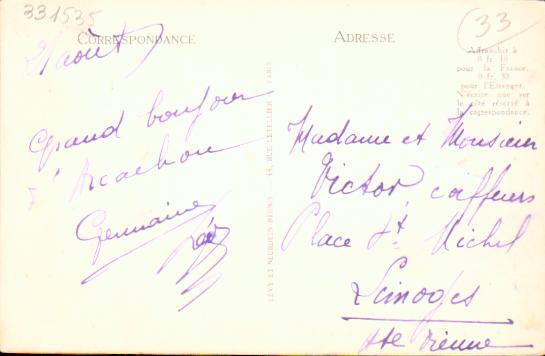 331535
33
CORRESPONDANCE
ADRESSE
Affranchir à
0 fr. 10
pour la France,
0 fr. 30
pour l'Etranger.
N'écrire que sur
le côté réservé à
la correspondance.
21 août
Grand bonjour
d'Arcachon
Germaine
LÉVY ET NEURDEIN RÉUNIS — 44, RUE LETELLIER — PARIS
Madame et Monsieur
Victor, coiffeurs
Place St Michel
Limoges
Hte Vienne